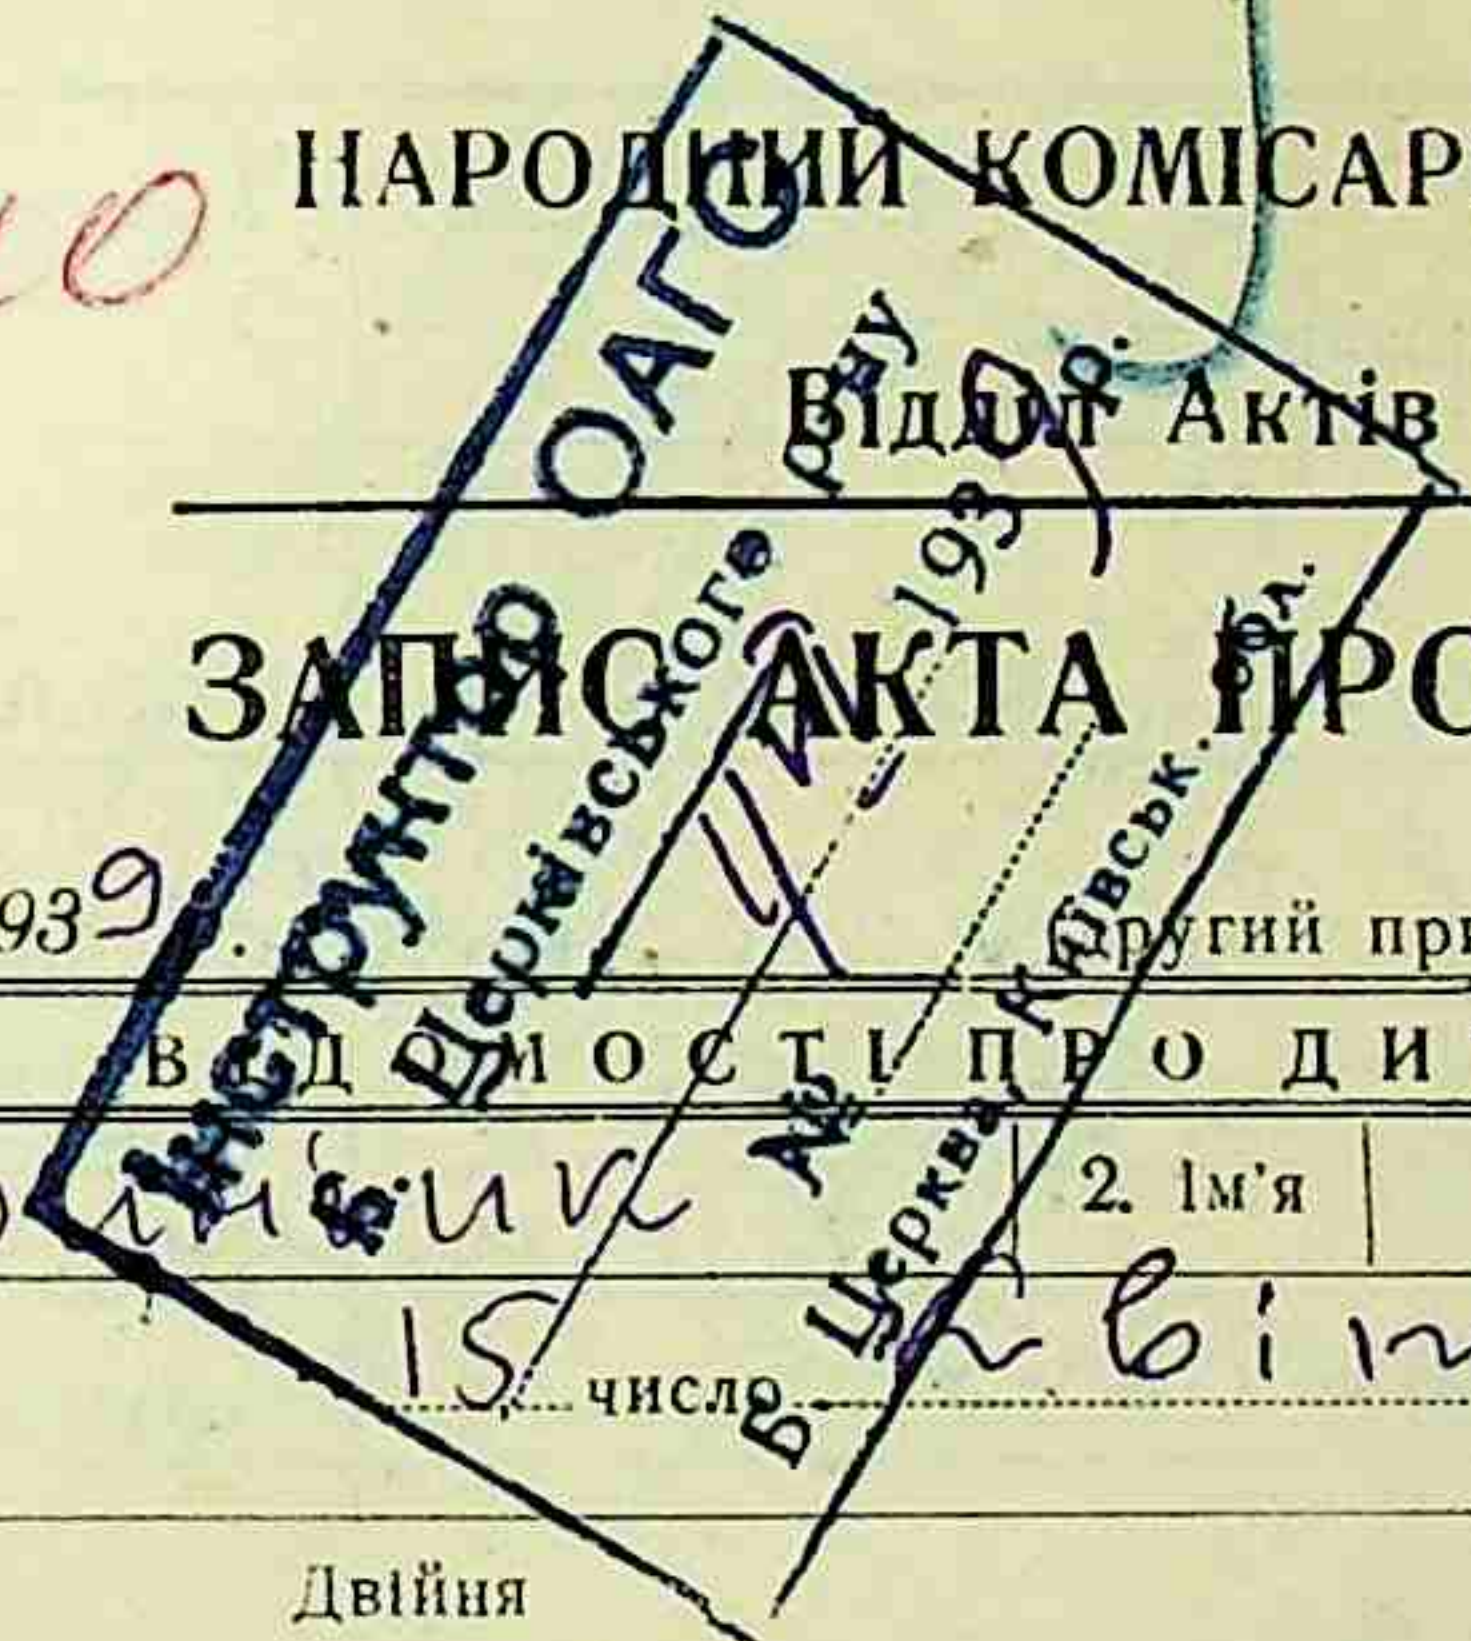 НАРОДНИЙ КОМІСАР
Відділ Актів
ЗАПИС АКТА ПРО
939
Другий при
ВІДОМОСТІ ПРО ДИ
2. Ім'я
15 число квіт
Двійня
Інструктор ОАГС
Б. Церківського р-ну
193 р.
№
Б Церква, Київськ. обл.